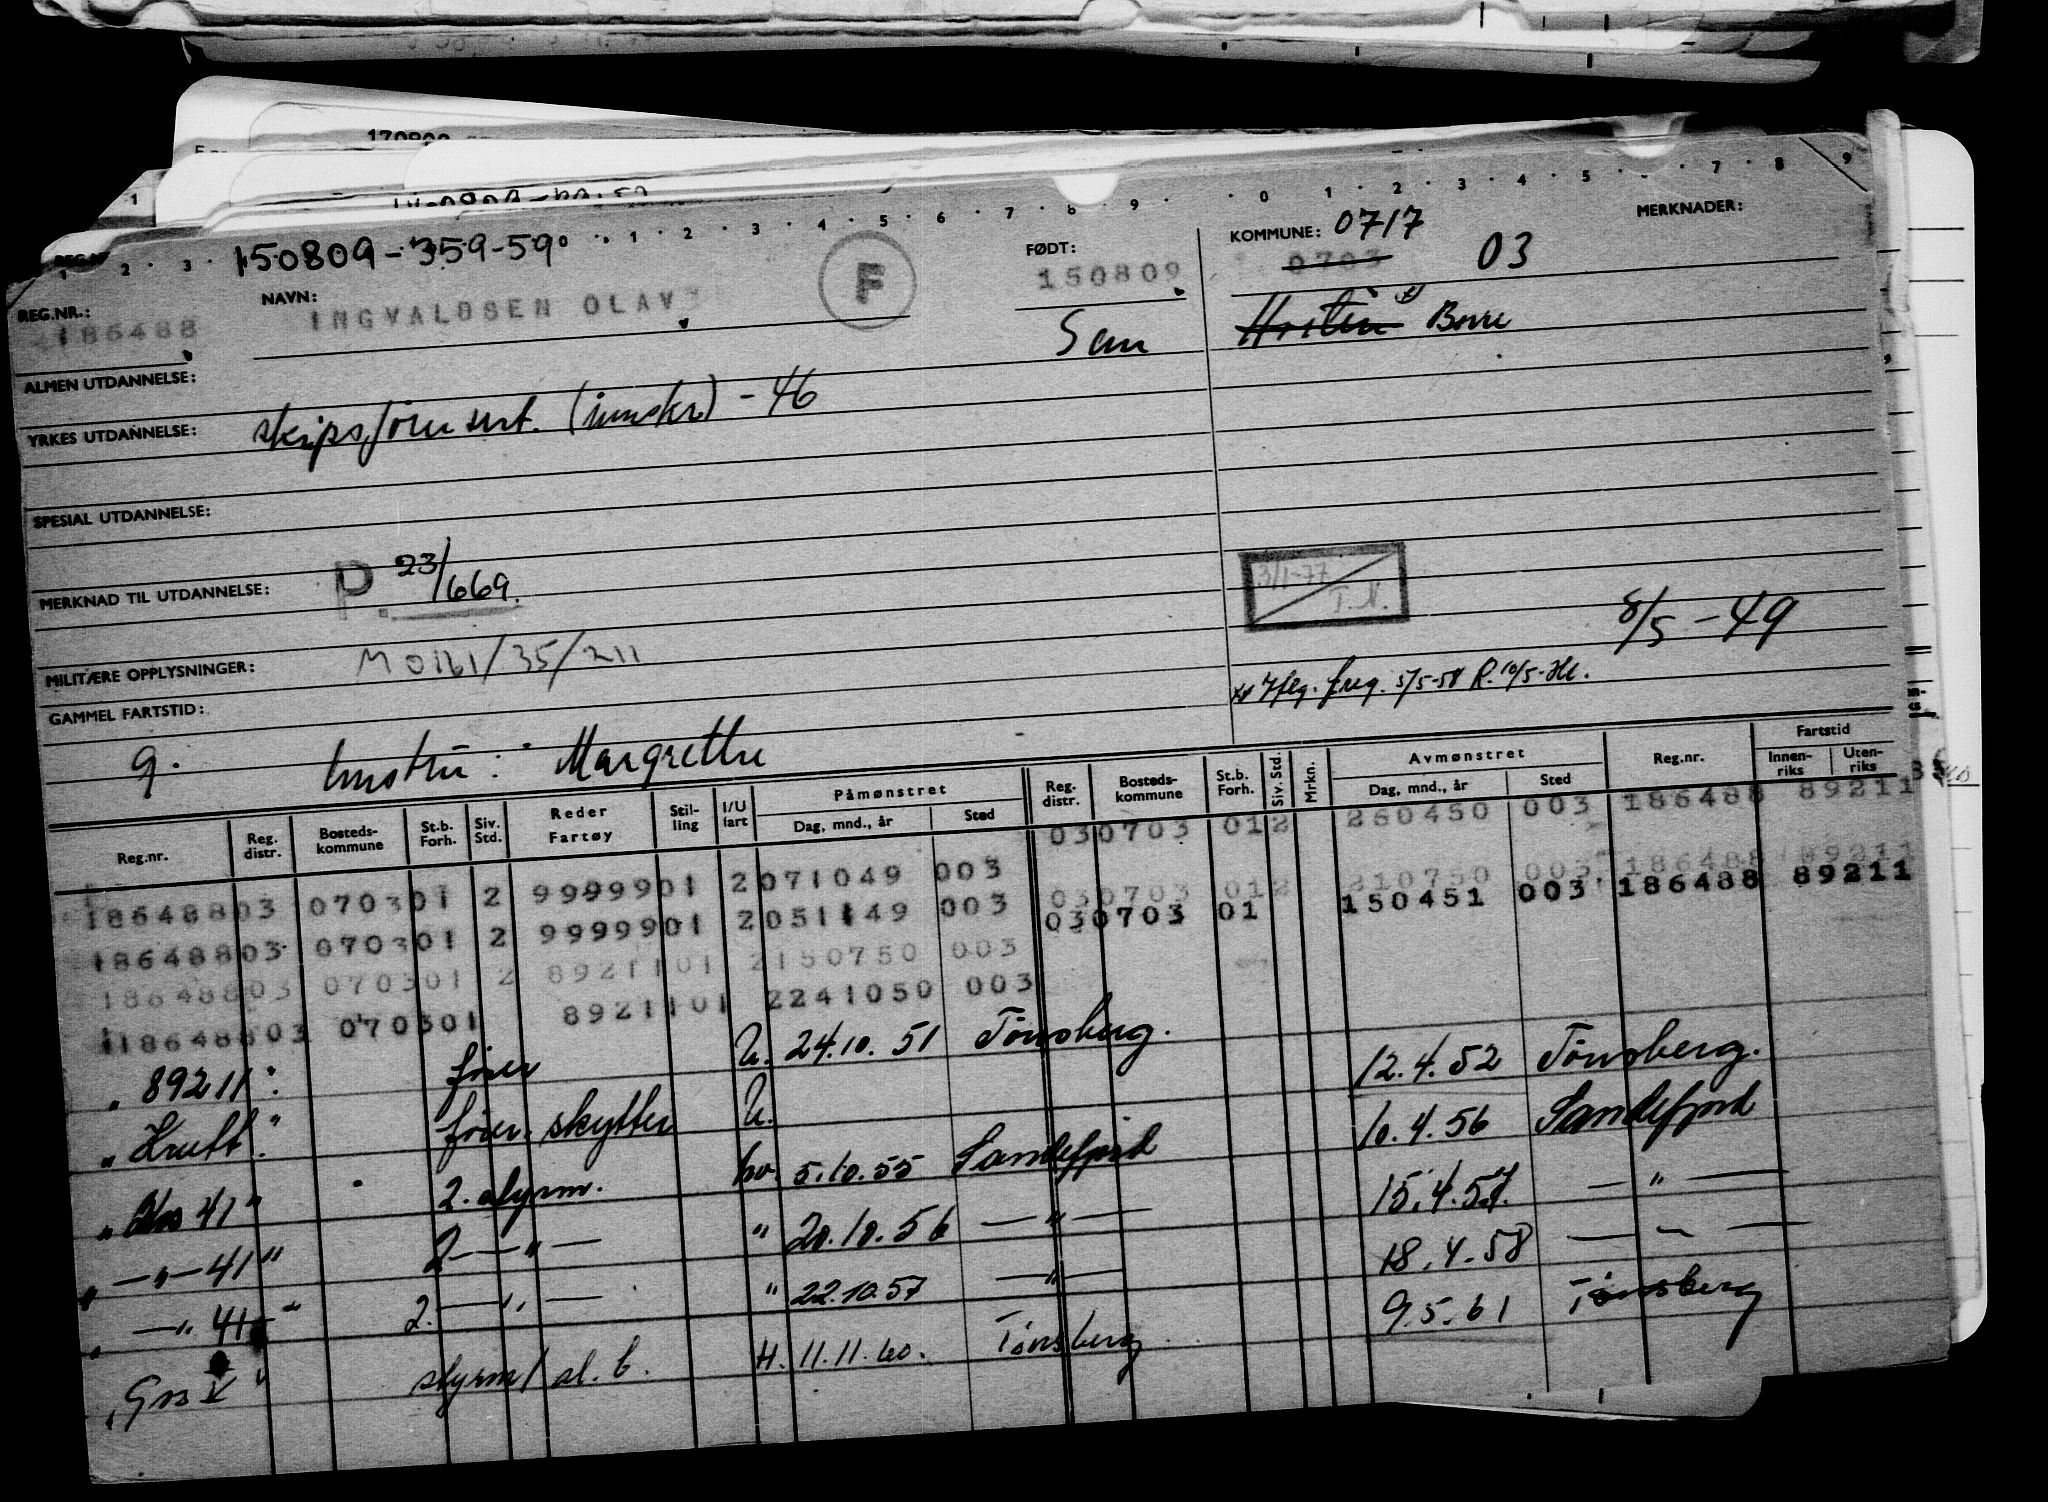 170809
0 1 2 3 4 5 6 7 8 9
1 2 3 0 1 2 3 4 5 6 7 8 9
150809-359-59
REG.NR.: 186488
NAVN: INGVALDSEN OLAV
F
FØDT: 150809
Sem
KOMMUNE: 0717
0703
03
Horten Borre
MERKNADER:
ALMEN UTDANNELSE:
YRKES UTDANNELSE: skipsfører urt. (innskr) - 46
SPESIAL UTDANNELSE:
MERKNAD TIL UTDANNELSE: P. 23/669.
3/1-77
T.N.
8/5-49
MILITÆRE OPPLYSNINGER: M 0161/35/211
Iflg. freg. 5/5-58 R. 10/5-
GAMMEL FARTSTID:
9. hustru: Margrethe
Reg.nr. Reg. distr. Bosteds-kommune St.b. Forh. Siv. Std. Reder Fartøy Stil-ling I/U fart Påmønstret Dag, mnd., år Sted Reg. distr. Bosteds-kommune St.b. Forh. Siv. Std. Mrkn. Avmønstret Dag, mnd., år Sted Reg.nr. Fartstid Innen-riks Uten-riks
18648803 070301 2 9999901 2071049 003 030703 012 260450 003 186488 89211
18648803 070301 2 9999901 2051149 003 030703 012 210750 003 186488 89211
18648803 070301 2 8921101 2150750 003 030703 01 150451 003 186488 89211
18648803 070301 8921101 2241050 003
" 89211 " fører U. 24.10.51 Tønsberg. 12.4.52 Tønsberg.
" Krutt. " fører. skytter U. 10.4.56 Sandefjord
" Kos 41 " 2. styrm. hv. 5.10.55 Sandefjord 15.4.57. — " —
" — " — 41 " 2 — " — " 20.10.56 — " — 18.4.58 — " —
" — " 41 " 2. — " — " 22.10.57 — " — 9.5.61 Tønsberg
" Gos V " styrm/ sl. b. H. 11.11.60. Tønsberg